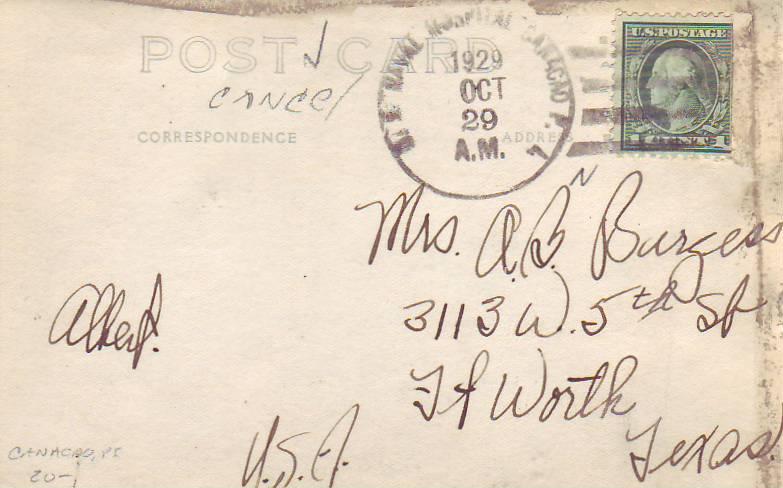 POST CARD
CANCEL
CORRESPONDENCE
ADDRESS
U.S. NAVAL HOSPITAL CANACAO P. I.
1929
OCT
29
A.M.
U.S. POSTAGE
Mrs. A. B. Burgess
3113 W. 5th St
Ft Worth
Texas
U.S.A.
Albert.
CANACAO, PI
20-